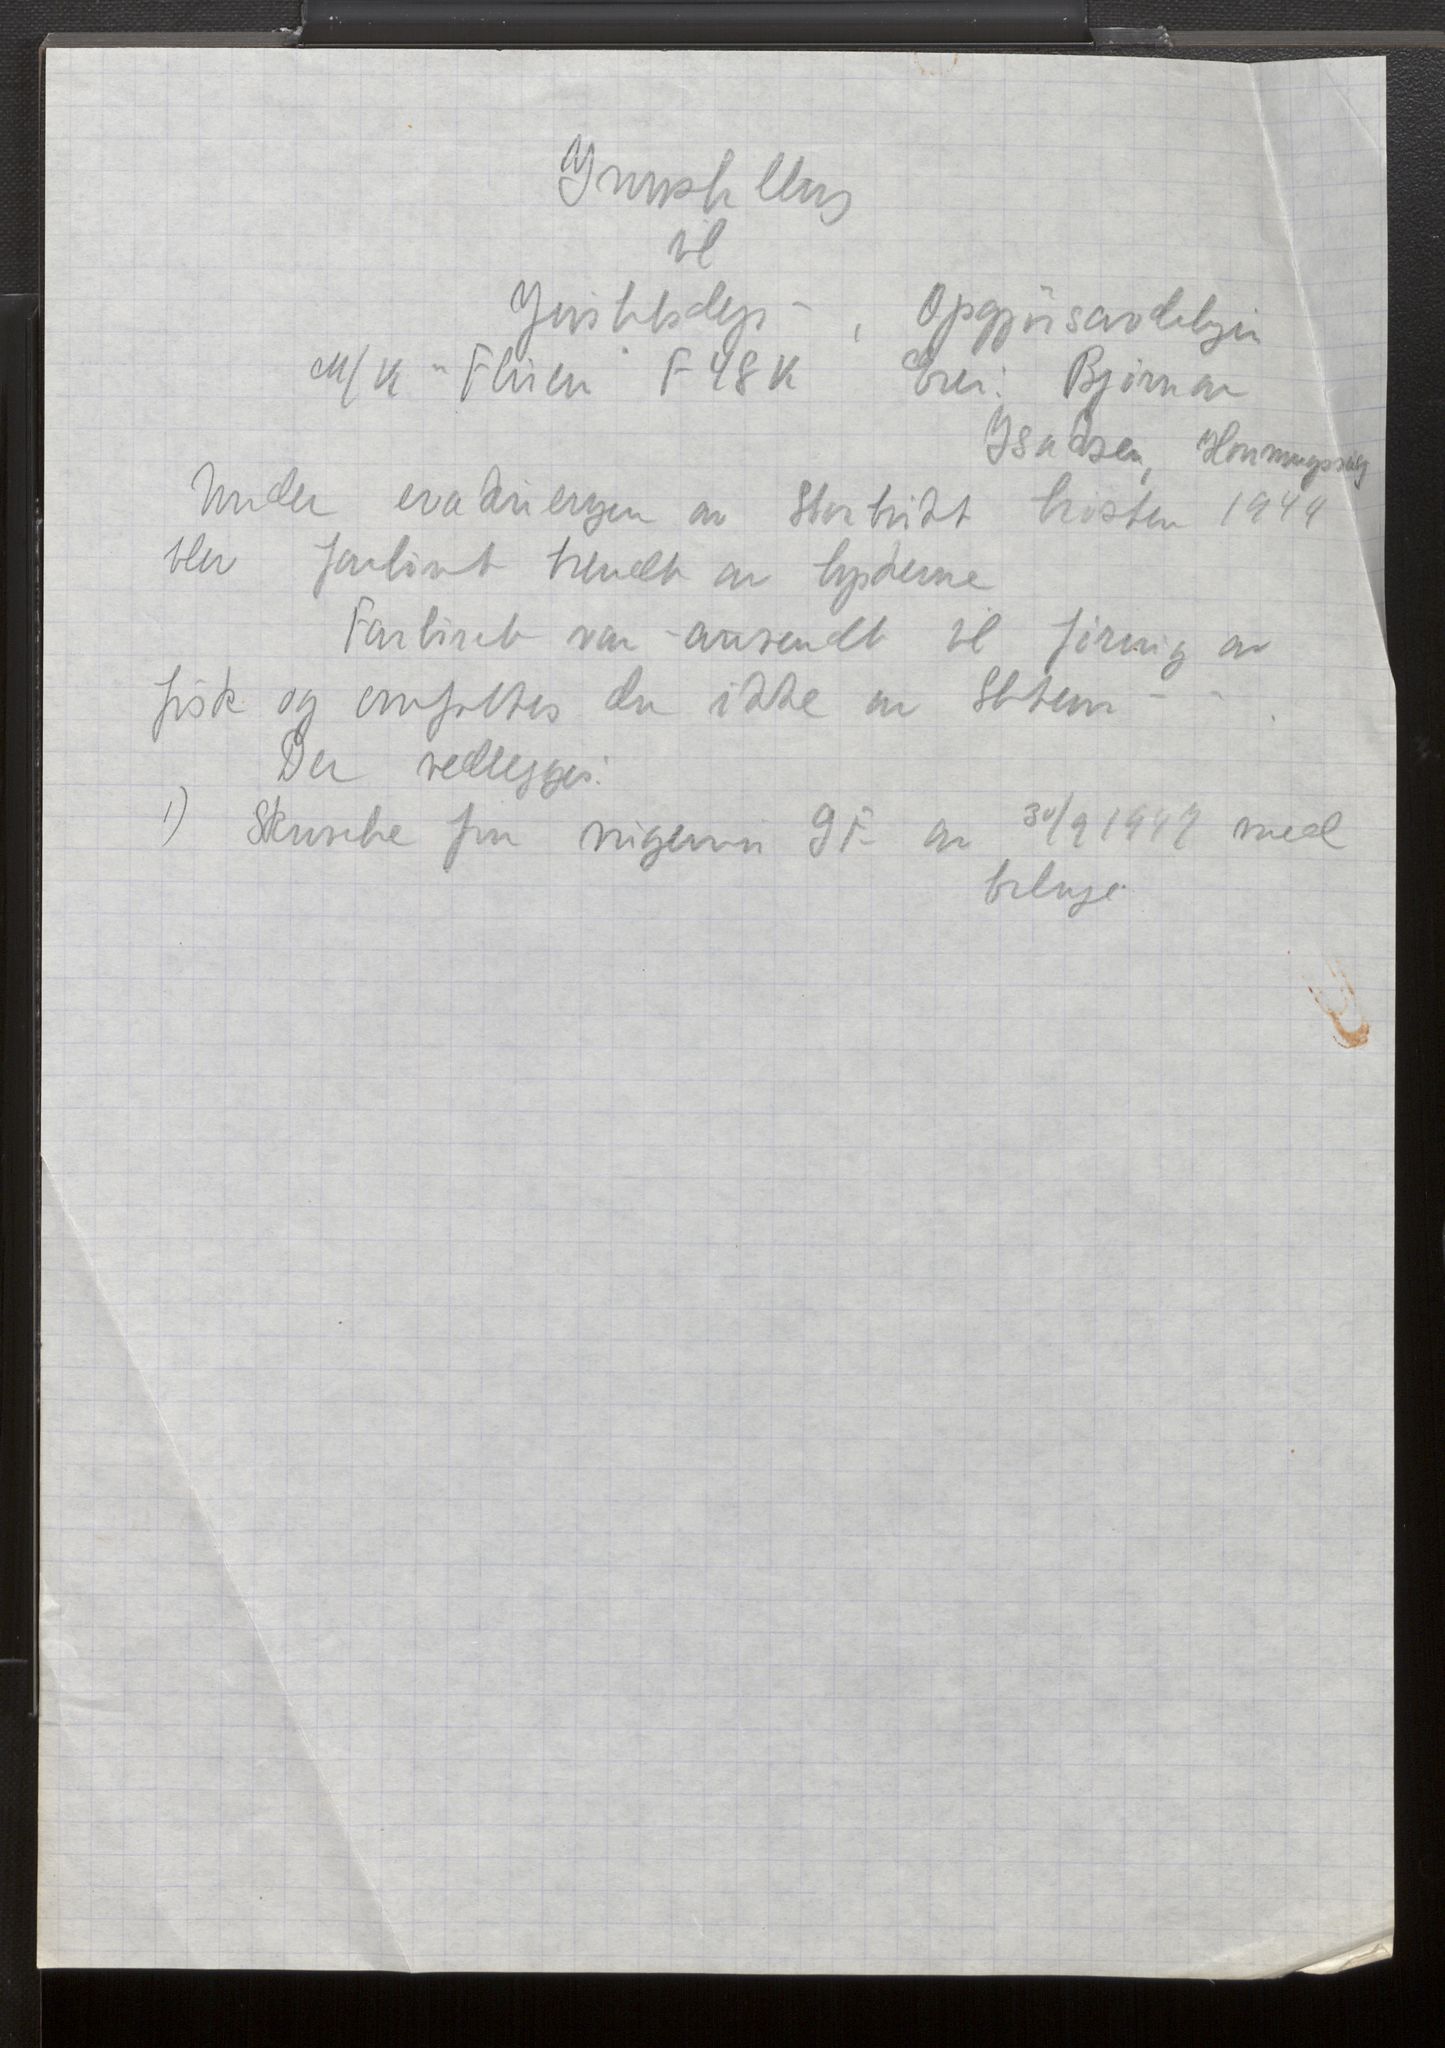 Innstilling
til
Justitsdep - , Opgjörsavdelingen
M/K "Flinen" F 48 K Eier: Björnar
Isaksen, Honningsvåg
Under evakueringen av Skarsvåg hösten 1944
blev fartöiet brendt av tyskerne
Fartöiet var anvendt til föring av
fisk og omfattes da ikke av
Der vedlegges:
1) Skrivelse fra 30/9 1947 med
bilage